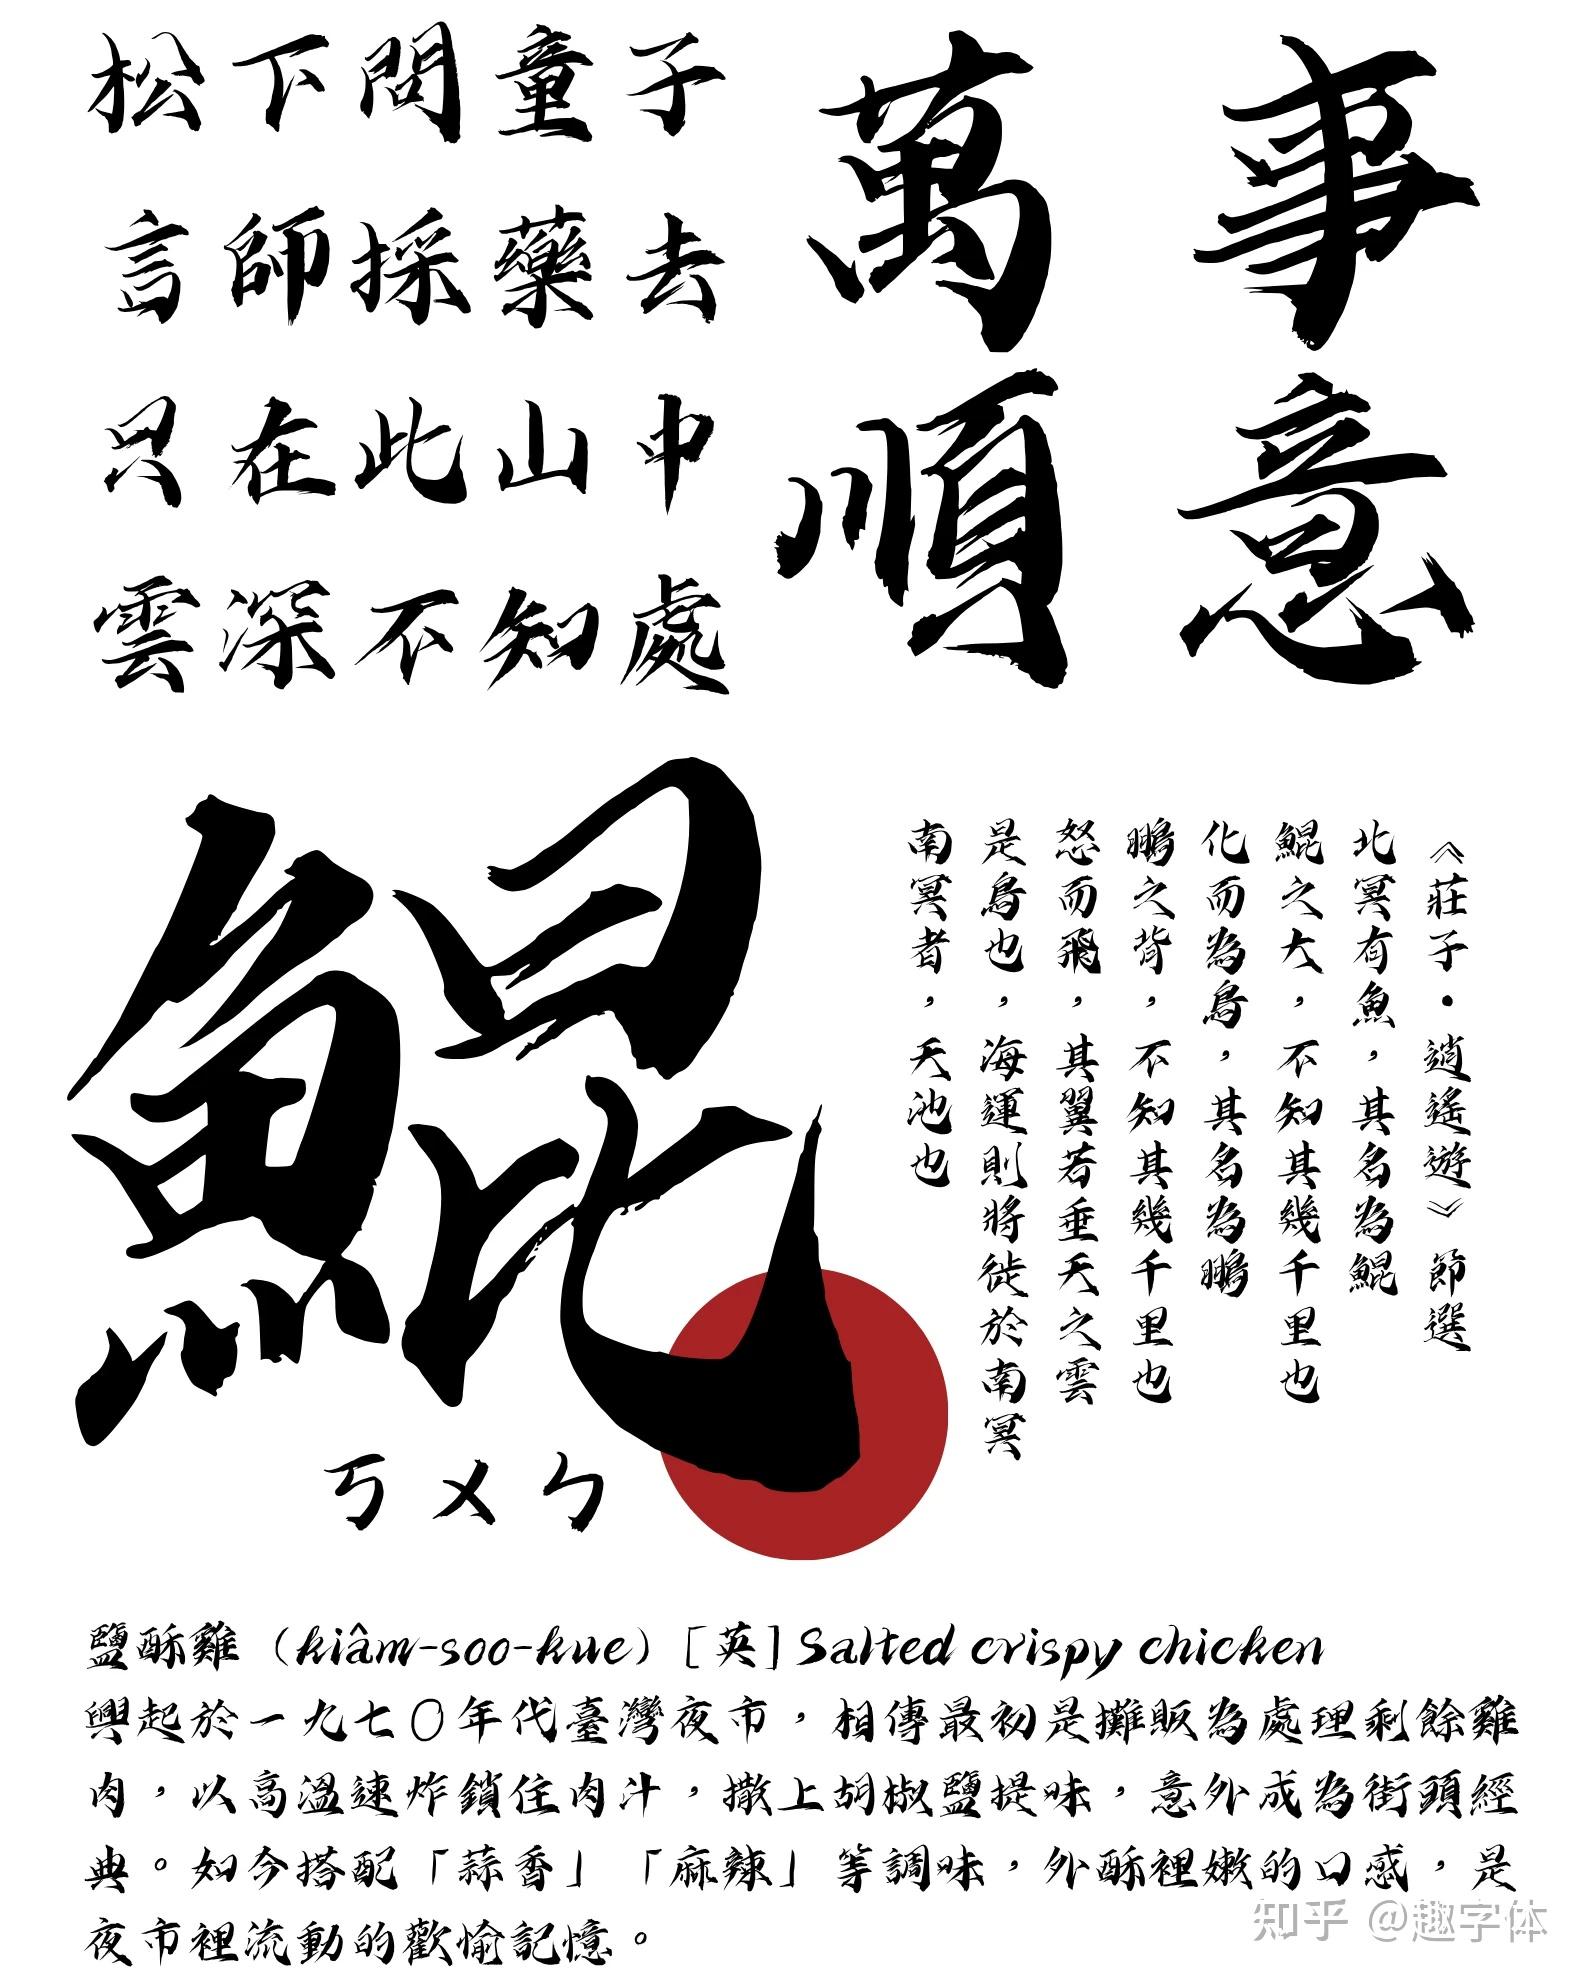 松下問童子
言師採藥去
只在此山中
雲深不知處
萬事
順意
鯤
ㄎㄨㄣ
《莊子•逍遙遊》節選
北冥有魚，其名為鯤
鯤之大，不知其幾千里也
化而為鳥，其名為鵬
鵬之背，不知其幾千里也
怒而飛，其翼若垂天之雲
是鳥也，海運則將徙於南冥
南冥者，天池也
鹽酥雞（kiâm-soo-kue）[英] Salted crispy chicken
興起於一九七〇年代臺灣夜市，相傳最初是攤販為處理剩餘雞
肉，以高溫速炸鎖住肉汁，撒上胡椒鹽提味，意外成為街頭經
典。如今搭配「蒜香」「麻辣」等調味，外酥裡嫩的口感，是
夜市裡流動的歡愉記憶。
知乎 @趣字体